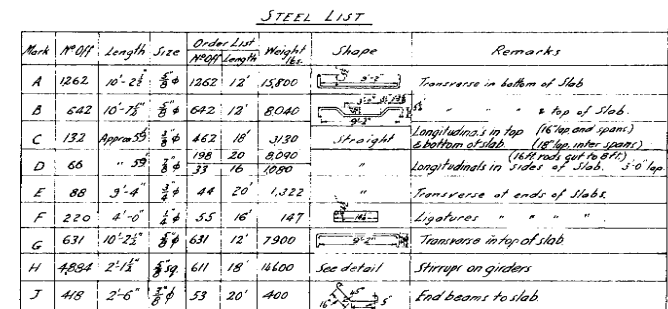 STEEL LIST
Mark NºOff Length Size Order List NºOff Length Weight lbs. Shape Remarks
A 1262 10'-2½" ⅝"ϕ 1262 12' 15,800 9'-2" Transverse in bottom of Slab
B 642 10'-7½" ⅝"ϕ 642 12' 8,040 9'-2" " " " & top of Slab.
C 132 Approx 59' ⅜"ϕ 462 18' 3130 Straight Longitudinals in top (16" lap end spans) & bottom of slab. (18" lap inter spans)
D 66 " 59' ϕ 198 20 8,090 33 16 1,080 " (16ft rods cut to 8ft.) Longitudinals in sides of Slab. 3'-0" lap.
E 88 9'-4" ¾"ϕ 44 20' 1,322 " Transverse at ends of Slabs.
F 220 4'-0" ¼"ϕ 55 16' 147 Ligatures " " " "
G 631 10'-2½" ⅝"ϕ 631 12' 7900 9'-2" Transverse in top of slab
H 4884 2'-1½" sq. 611 18' 16600 See detail Stirrups on girders
J 418 2'-6" ⅜"ϕ 53 20' 400 16" 45° 5" End beams to slab.